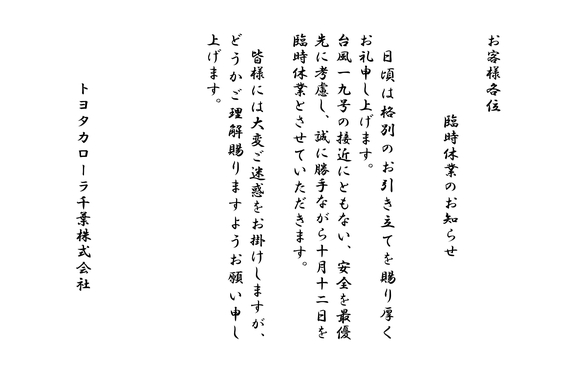 お客様各位
臨時休業のお知らせ
日頃は格別のお引き立てを賜り厚く
お礼申し上げます。
台風一九号の接近にともない、安全を最優
先に考慮し、誠に勝手ながら十月十二日を
臨時休業とさせていただきます。
皆様には大変ご迷惑をお掛けしますが、
どうかご理解賜りますようお願い申し
上げます。
トヨタカローラ千葉株式会社